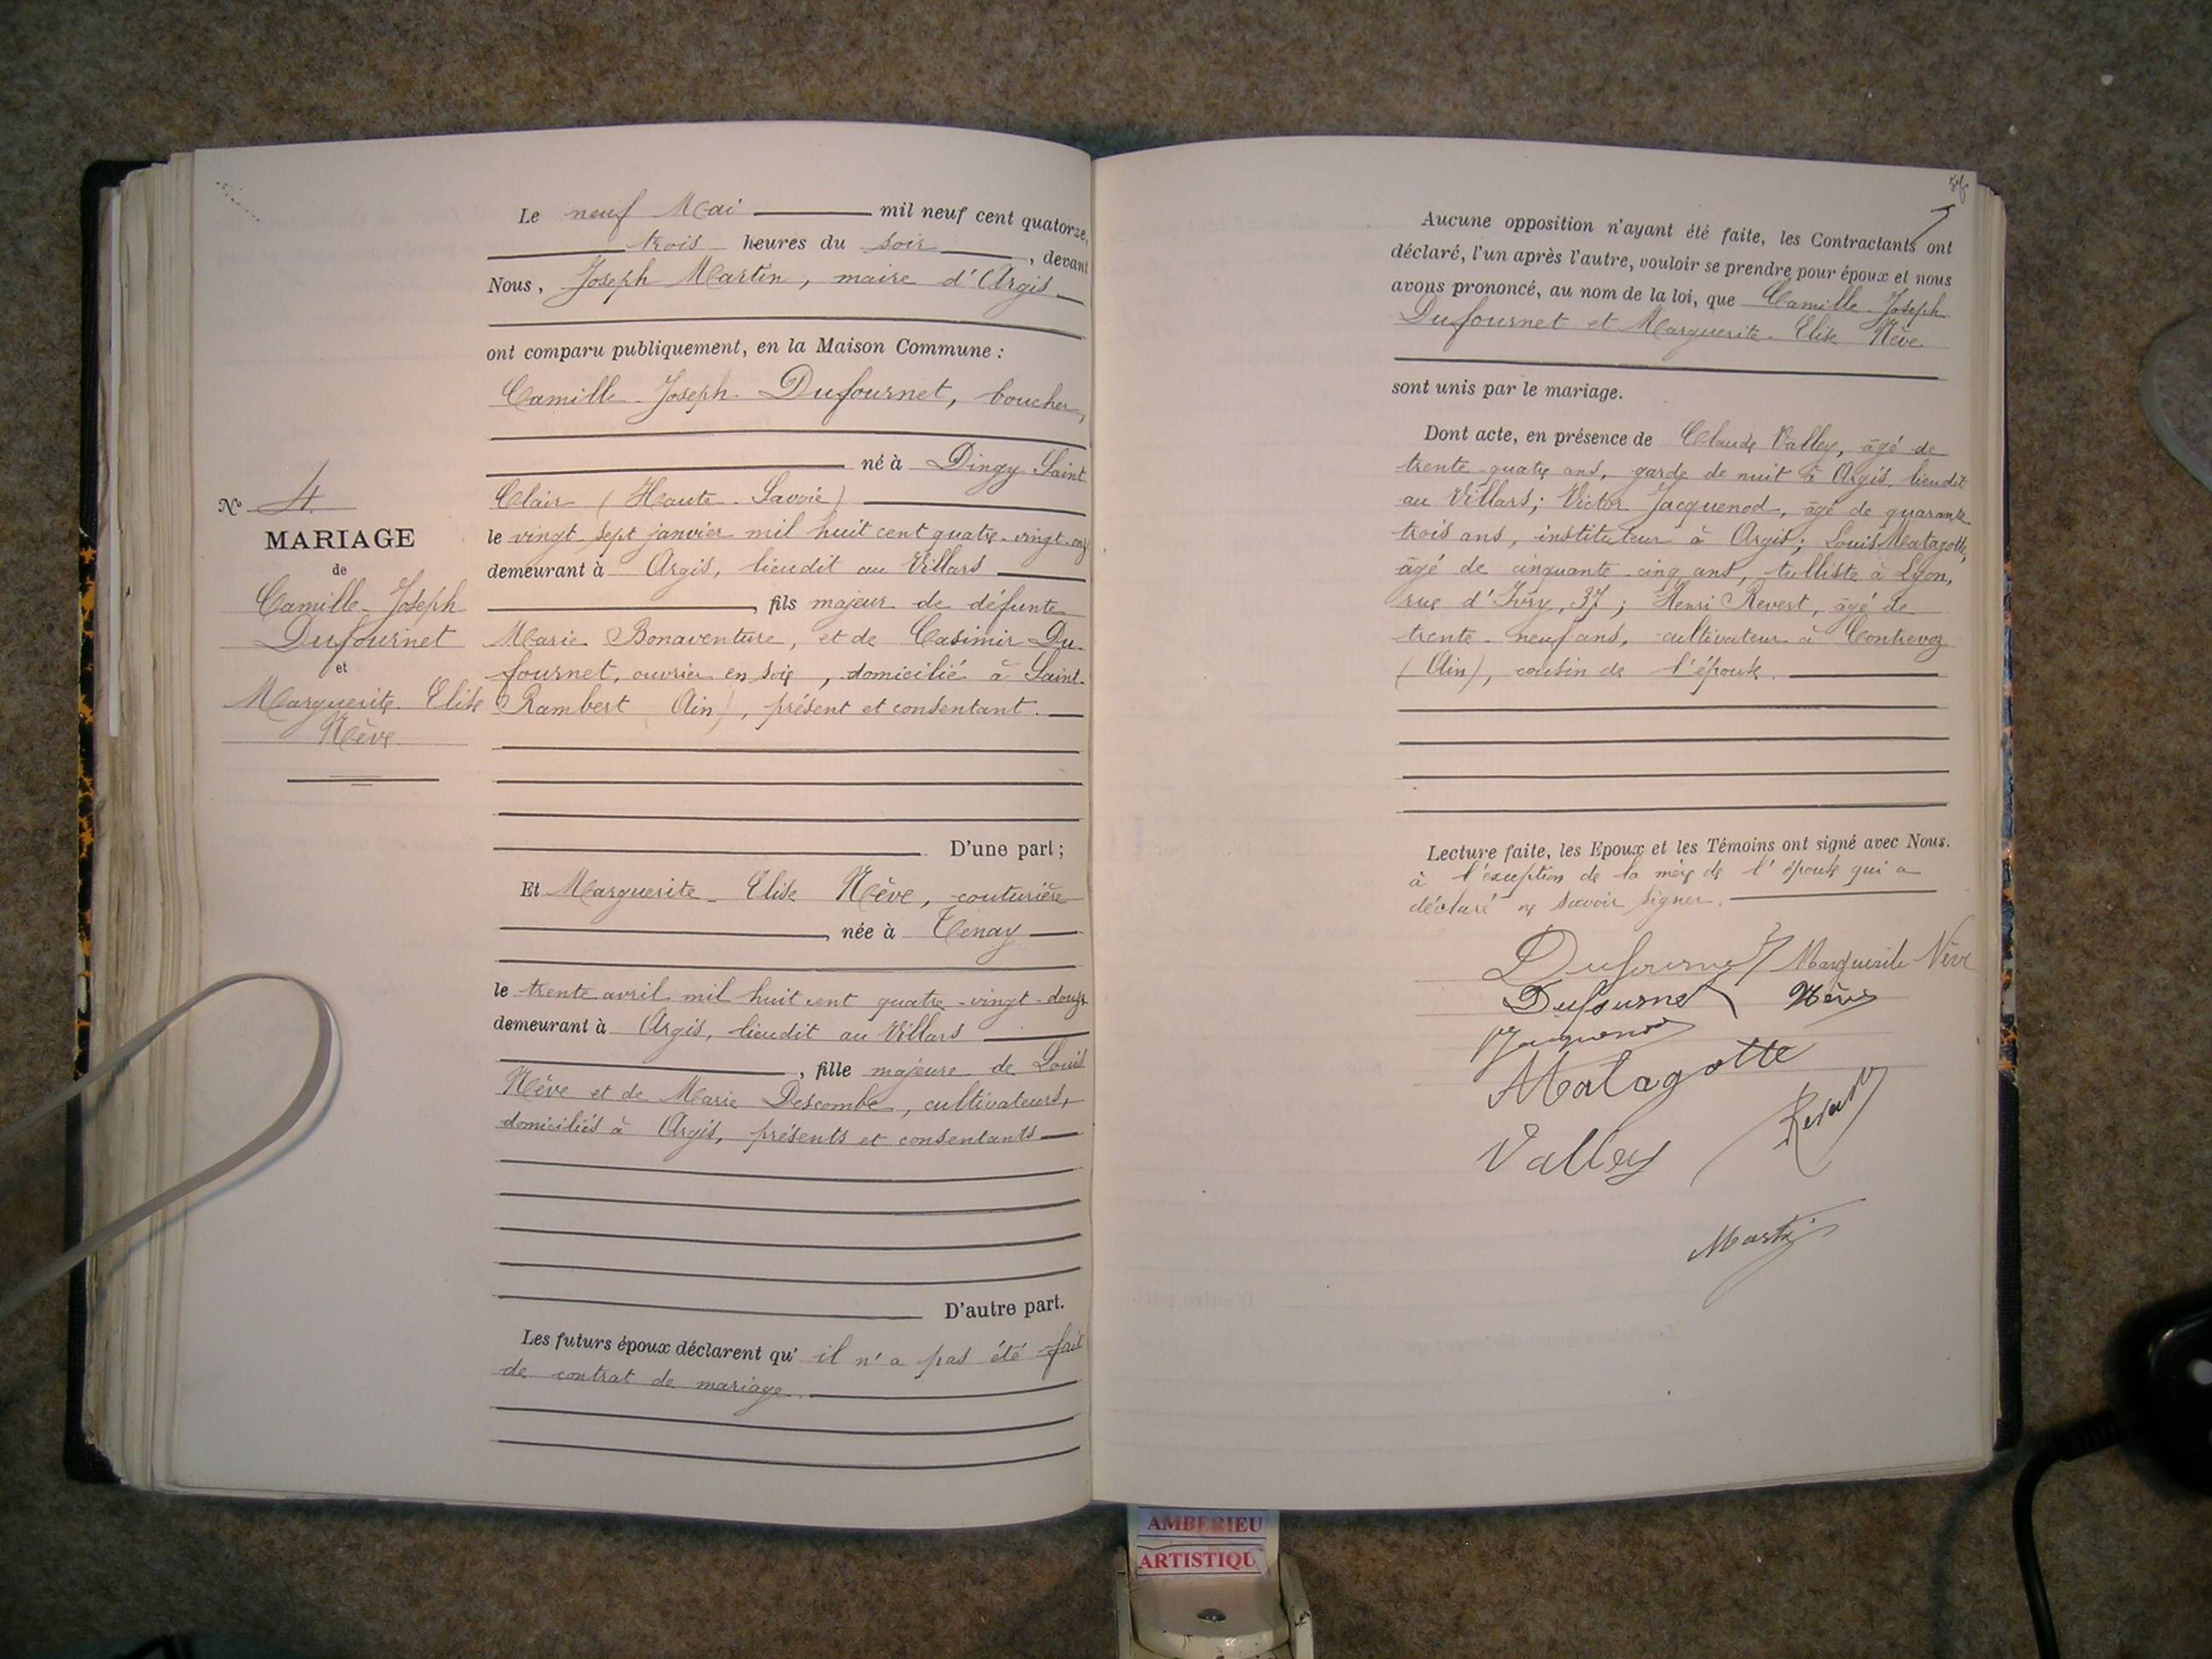 Le neuf Mai mil neuf cent quatorze,
trois heures du soir, devant
Nous, Joseph Martin, maire d'Argis
ont comparu publiquement, en la Maison Commune :
Camille-Joseph Dufournet, boucher,
né à Dingy-Saint
Clair (Haute-Savoie)
le vingt-sept janvier mil huit cent quatre-vingt-onze
demeurant à Argis, lieudit au Villars
, fils majeur de défunte
Marie Bonaventure, et de Casimir Du-
fournet, ouvrier en soie, domicilié à Saint-
Rambert (Ain), présent et consentant.
D'une part ;
Et Marguerite-Elise Nève, couturière
, née à Tenay
le trente avril mil huit cent quatre-vingt-douze
demeurant à Argis, lieudit au Villars
, fille majeure de Louis
Nève et de Marie Descombe, cultivateurs,
domiciliés à Argis, présents et consentants
D'autre part.
Les futurs époux déclarent qu'il n'a pas été fait
de contrat de mariage.
N° 4
MARIAGE
de
Camille-Joseph
Dufournet
et
Marguerite-Elise
Nève
Aucune opposition n'ayant été faite, les Contractants ont
déclaré, l'un après l'autre, vouloir se prendre pour époux et nous
avons prononcé, au nom de la loi, que Camille-Joseph
Dufournet et Marguerite-Elise Nève
sont unis par le mariage.
Dont acte, en présence de Claude Valley, âgé de
trente-quatre ans, garde de nuit à Argis, lieudit
au Villars; Victor Jacquenod, âgé de quarante
trois ans, instituteur à Argis; Louis Matagotte,
âgé de cinquante-cinq ans, tulliste à Lyon,
rue d'Ivry, 37; Henri Revert, âgé de
trente-neuf ans, cultivateur à Contrevoz
(Ain), cousin de l'épouse.
Lecture faite, les Epoux et les Témoins ont signé avec Nous.
à l'exception de la mère de l'épouse qui a
déclaré ne savoir signer.
Dufournet Marguerite Nève
Dufournet Nève
Jacquenod
Matagotte
Revert
Valley
Martin
AMBERIEU
ARTISTIQU